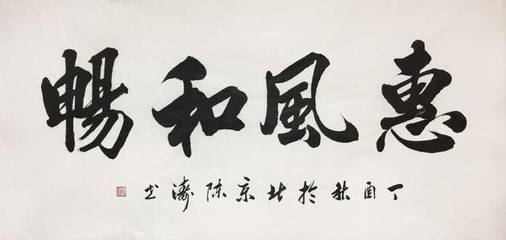 惠風和暢
丁酉秋於北京陳濤书